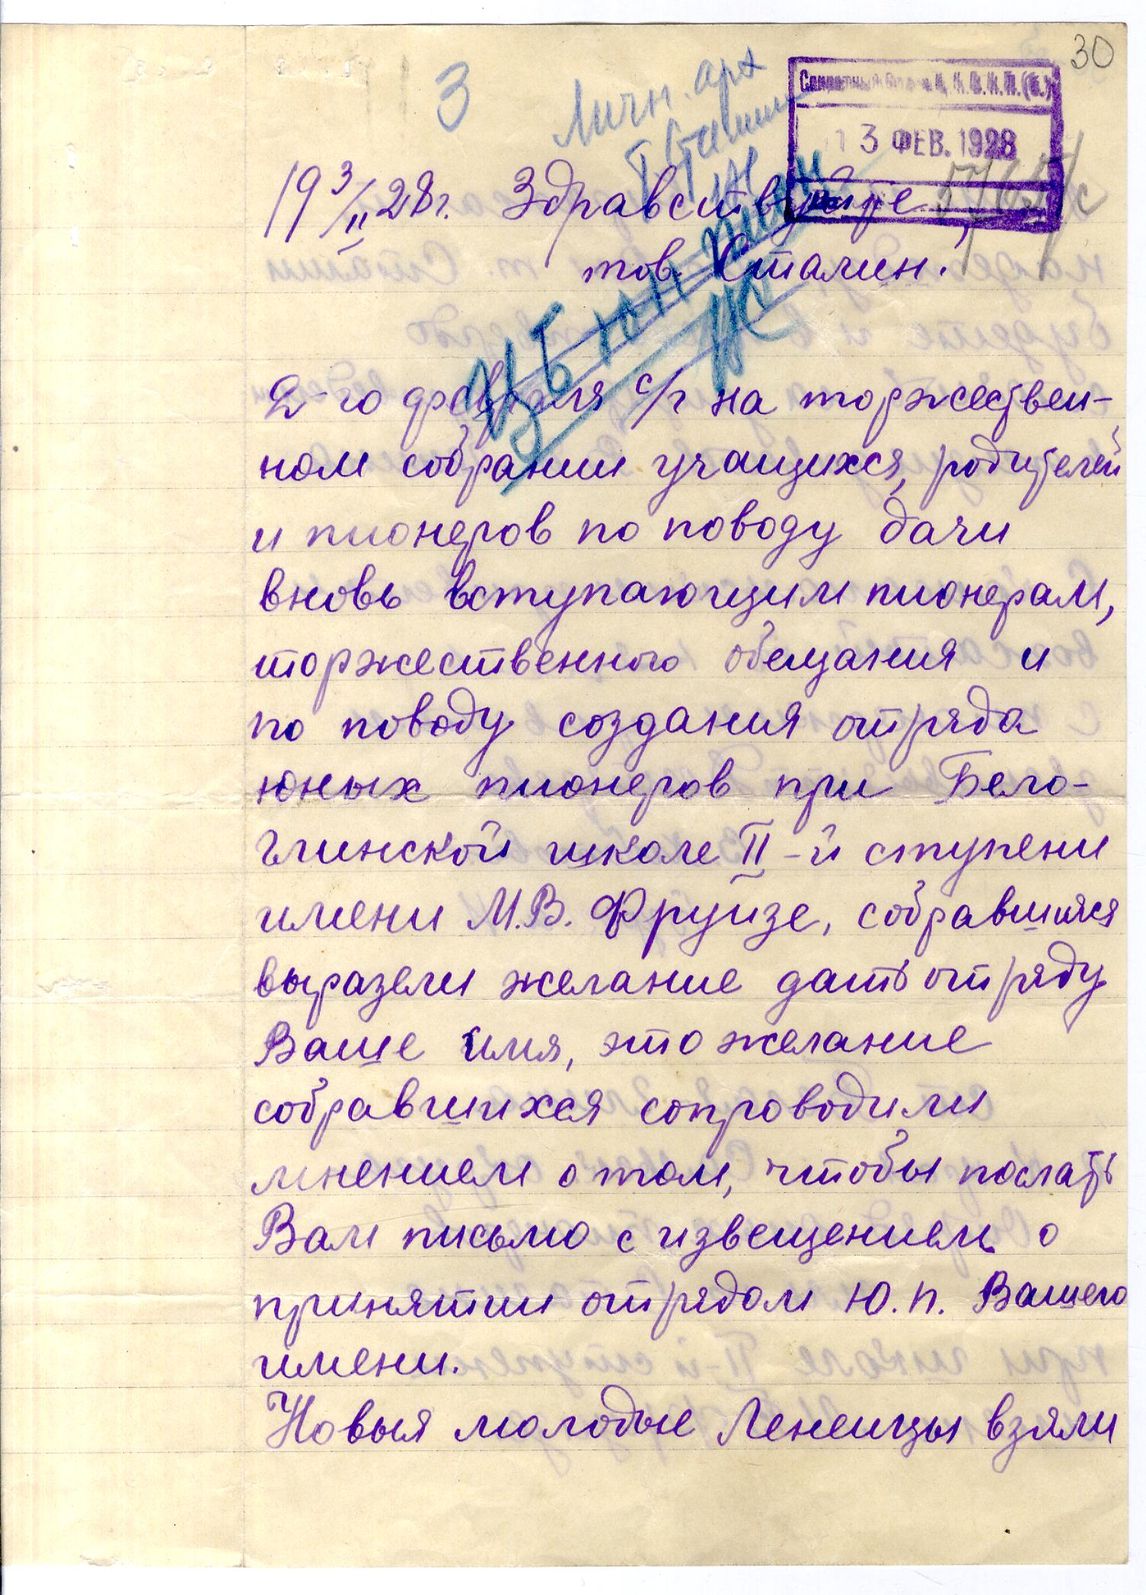 30
3
Личн. арх
т. Сталин
Секретный Отдел Ц.К.В.К.П.(б.)
13 ФЕВ. 1928
19 3/II 28 г. Здравствуйте,
тов. Сталин.
ЦБ юн пион
2-го февраля с/г на торжествен-
ном собрании учащихся, родителей
и пионеров по поводу дачи
вновь вступающим пионерам,
торжественного обещания и
по поводу создания отряда
юных пионеров при Бело-
глинской школе II-й ступени
имени М.В. Фрунзе, собравшиеся
выразели желание дать отряду
Ваше имя, это желание
собравшихся сопроводили
мнением о том, чтобы послать
Вам письмо с извещением о
принятии отрядом Ю.П. Вашего
имени.
Новыя молодые Ленецы взяли